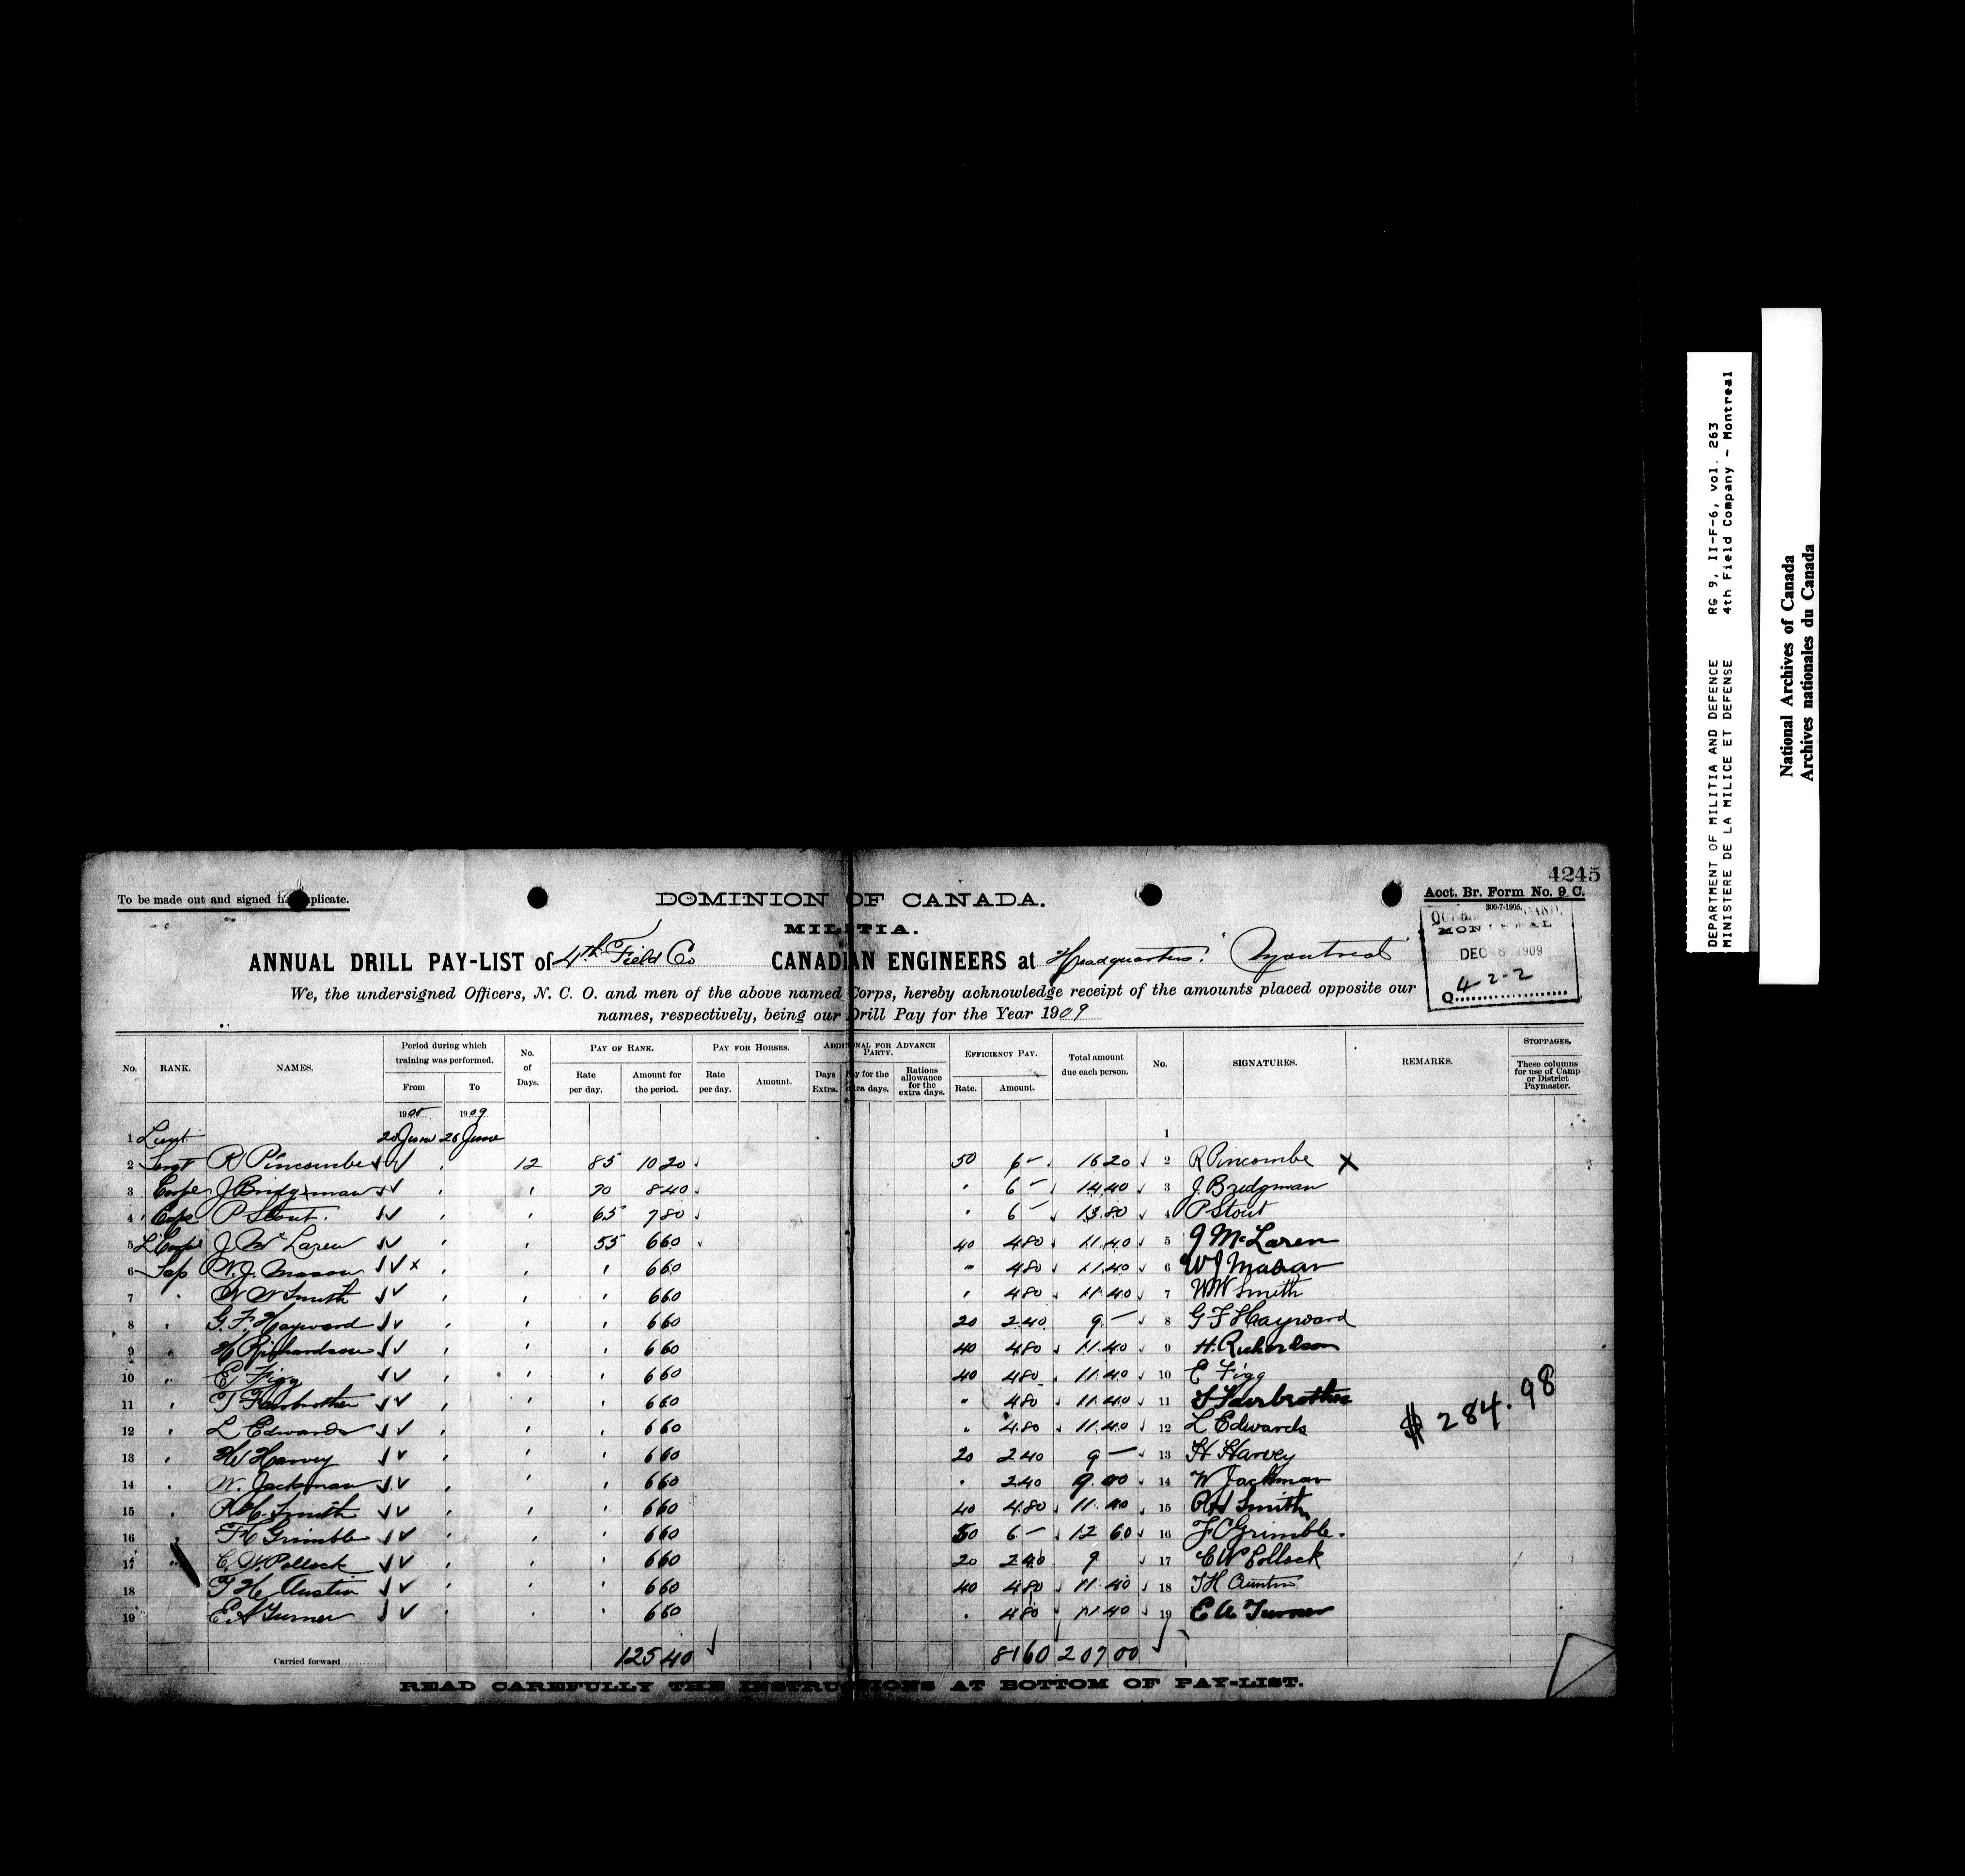 4245
To be made out and signed in duplicate.
DOMINION OF CANADA.
Acct. Br. Form No. 9 C.
300-7-1905.
MILITIA.
MONTREAL
DEC 8 1909
Q 4-2-2
ANNUAL DRILL PAY-LIST of 4th Field Co CANADIAN ENGINEERS at Headquarters: Montreal
We, the undersigned Officers, N. C. O. and men of the above named Corps, hereby acknowledge receipt of the amounts placed opposite our
names, respectively, being our Drill Pay for the Year 1909
No. RANK. NAMES. Period during which training was performed. From To No. of Days. PAY OF RANK. Rate per day. Amount for the period. PAY FOR HORSES. Rate per day. Amount. ADDITIONAL FOR ADVANCE PARTY. Days Extra. Pay for the extra days. Rations allowance for the extra days. EFFICIENCY PAY. Rate. Amount. Total amount due each person. No. SIGNATURES. REMARKS. STOPPAGES. These columns for use of Camp or District Paymaster.
1909
1 Lieut 20 June 26 June 1
2 Sergt R Pincombe 12 85 10 20 50 6 - 16 20 2 R Pincombe X
3 Corpl J Bridgman " 70 8 40 " 6 - 14 40 3 J. Bridgman
4 Corpl P Stout. " 65 7 80 " 6 - 13 80 4 P Stout
5 L Corpl J McLaren " 55 6 60 40 4 80 11 40 5 J McLaren
6 Sap W. J. Mason x " " 6 60 " 4 80 11 40 6 W J Mason
7 " W W Smith " " 6 60 " 4 80 11 40 7 W W Smith
8 " G. F. Hayward " " 6 60 20 2 40 9 - 8 G F Hayward
9 " H Richardson " " 6 60 40 4 80 11 40 9 H. Richardson
10 " E Figg " " 6 60 40 4 80 11 40 10 E Figg
11 " T Fairbrother " " 6 60 " 4 80 11 40 11 T Fairbrother
12 " L Edwards " " 6 60 " 4 80 11 40 12 L Edwards
13 " H Harvey " " 6 60 20 2 40 9 - 13 H Harvey
14 " W. Jackman " " 6 60 " 2 40 9.00 14 W Jackman
15 " R H. Smith " " 6 60 40 4 80 11 40 15 R H Smith
16 " F C Grimble " " 6 60 50 6 - 12 60 16 F C Grimble.
17 " C W. Pollock " " 6 60 20 2 40 9 17 C W Pollock
18 T H Austin " " 6 60 40 4 80 11 40 18 T H Austin
19 E A Turner " " 6 60 " 4 80 11 40 19 E A Turner
$ 284.98
Carried forward 125 40 81 60 207 00
READ CAREFULLY THE INSTRUCTIONS AT BOTTOM OF PAY-LIST.
DEPARTMENT OF MILITIA AND DEFENCE RG 9, II-F-6, vol. 263
MINISTERE DE LA MILICE ET DEFENSE 4th Field Company - Montreal
National Archives of Canada
Archives nationales du Canada